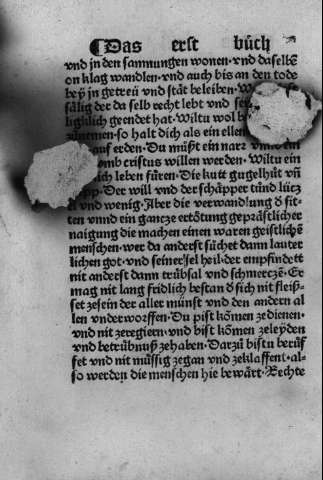 ¶Das erst büch
vnd in den samnungen wonen · vnd daselbē
on klag wandlen · vnd auch bis an den tode
beÿ in getreü vnd stät beleiben ·
sälig der da selb recht lebt vnd
ligklich geendet hat · Wiltu wol
so halt dich als ein ellen
auf erden · Du müst ein narr
cristus willen werden · Wiltu ein
ich leben füren · Die kutt gugelhüt vñ
Der will vnd der schäpper tünd lücz
vnd wenig · Aber die verwandlung ð sit-
ten vnnd ein gancze ertötung geprästlicher
naigung die machen einen waren geistlichē
menschen · wer da anderst süchet dann lauter
lichen got · vnd seiner sel heil · der empfindett
nit anderst dann trübsal vnd schmerczē · Er
mag nit lang fridlich bestan ð sich nit fleiß-
set zesein der aller münst vnd den andern al
len vnderworffen · Du pist kömen zedienen ·
vnd nit zeregiern · vnd bist kömen zeleyden
vnd betrübnuß zehaben · Darzü bistu berüf
fet vnd nit müssig zegan vnd zeklaffen · al-
so werden die menschen hie bewärt · Rechte